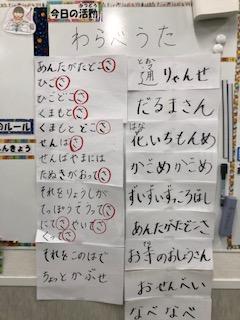 今日の活動
かつどう
わらべうた
あんたがたどこさ
ひごさ
ひごどこさ
くまもとさ
くまもとどこさ
せんばさ
せんばやまには
たぬきがおってさ
それをりょうしが
てっぽうでうってさ
にてさやいてさ
くってさ
それをこのはで
ちょっとかぶせ
とお
通りゃんせ
だるまさん
はな
花いちもんめ
かごめかごめ
ずいずいずっころばし
あんたがたどこさ
お寺のおしょうさん
おせんべい
なべなべ
のルール